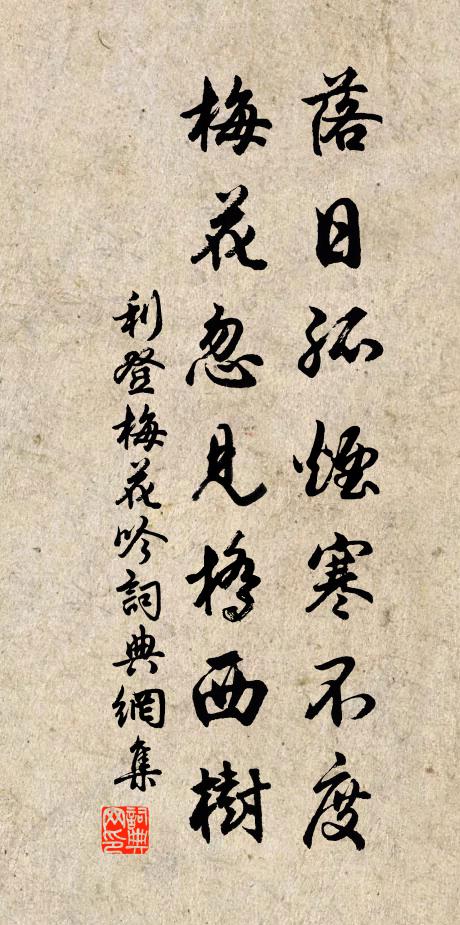 落日孤煙寒不度
梅花忽見橋西樹
利登梅花吟詞典網集
詞典
网印